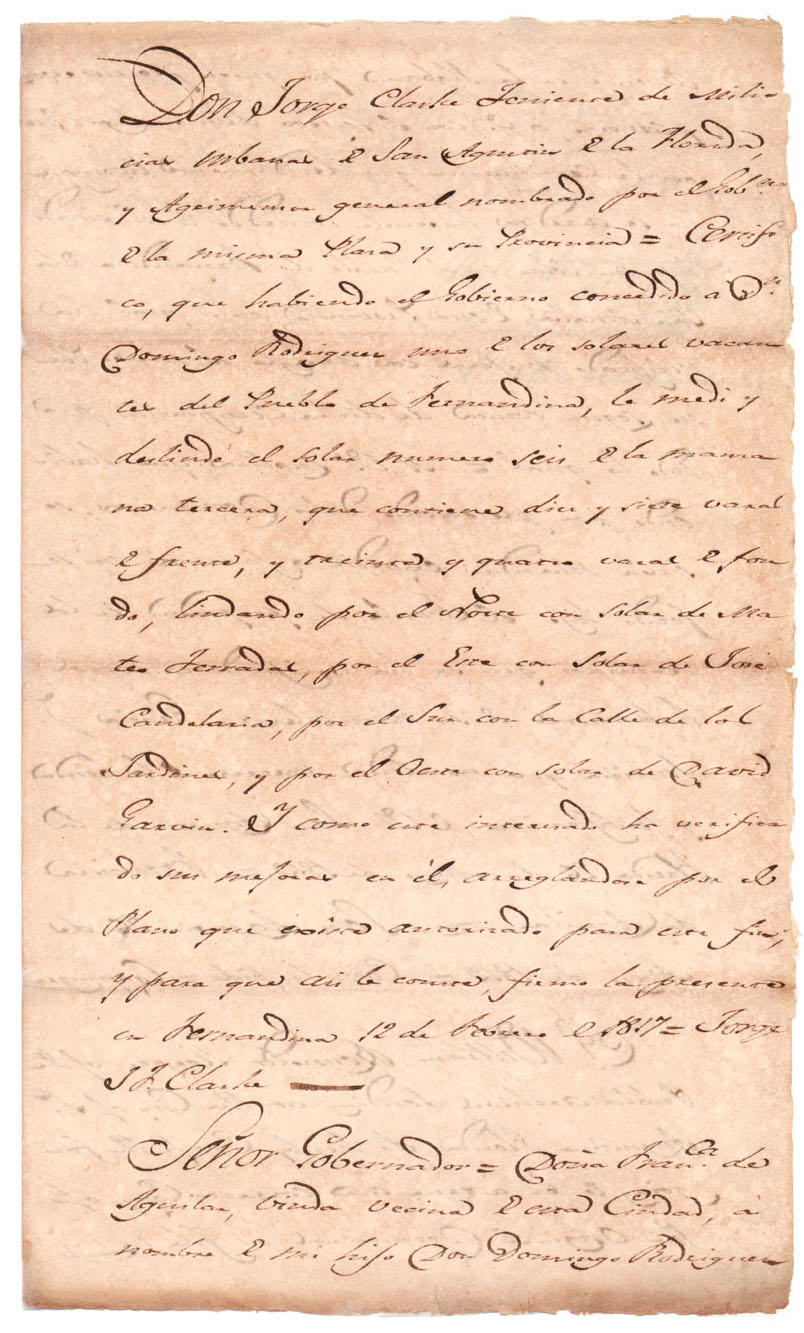 Don Jorge Clarke Teniente de Mili=
cias urbanas de San Agustin de la Florida,
y Agrimensor general nombrado por el Gob.no
de la misma Plaza y su Provincia = Certifi
co, que habiendo el Gobierno concedido a D.n
Domingo Rodriguez uno de los solares vacan
tes del Pueblo de Fernandina, le medi y
deslindé el solar numero seis de la manza
na tercera, que contiene diez y siete varas
de frente, y treinta y quatro varas de fon
do, lindando por el Norte con solar de Ma
teo Terradas, por el Este con solar de José
Candelaria, por el Sur con la Calle de los
Jardines, y por el Oeste con solar de David
Garvin. Y como este interesado ha verifica
do sus mejoras en él, arreglandose por el
Plano que existe autorizado para este fin;
y para que asi le conste, firmo la presente
en Fernandina 12 de Febrero de 1817 = Jorge
J. F. Clarke
Señor Gobernador = Doña Fran.ca de
Aguilar, viuda vecina de esta Ciudad, á
nombre de mi hijo Don Domingo Rodriguez